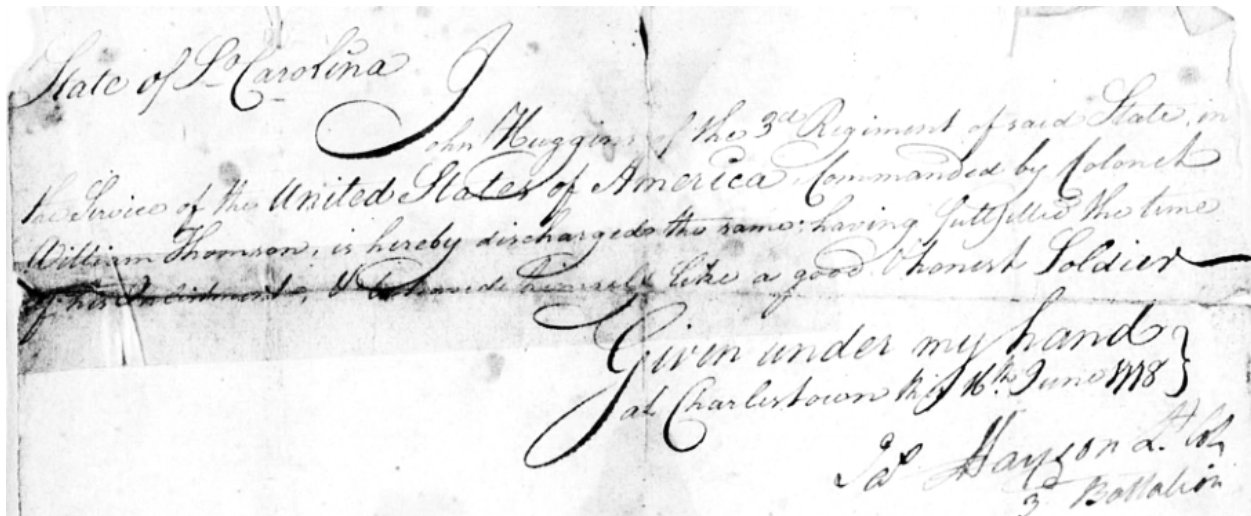 State of So. Carolina
John Huggins of the 3d Regiment of said State, in
the Service of the United States of America, Commanded by Colonel
William Thomson, is hereby discharged the same; having fullfilled the time
of his Inlistment, & behaved himself like a good & honest Soldier
Given under my hand
at Charlestown this 16th June 1778
Lt Col
3d Battalion